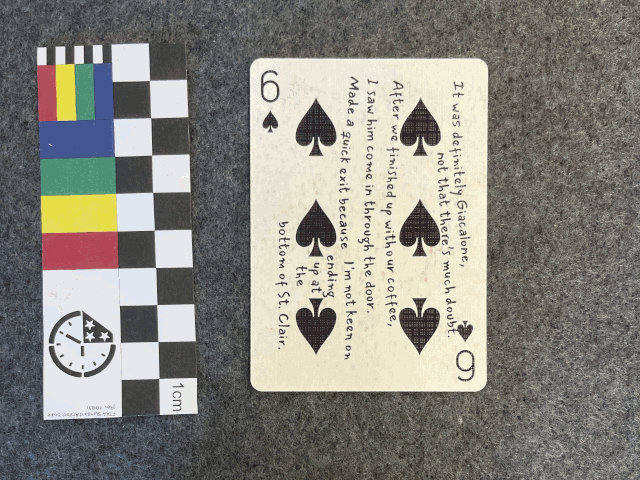 6
It was definitely Giacalone,
not that there's much doubt.
After we finished up with our coffee,
I saw him come in through the door.
Made a quick exit because I'm not keen on
ending
up at
the
bottom of St. Clair.
6
1cm